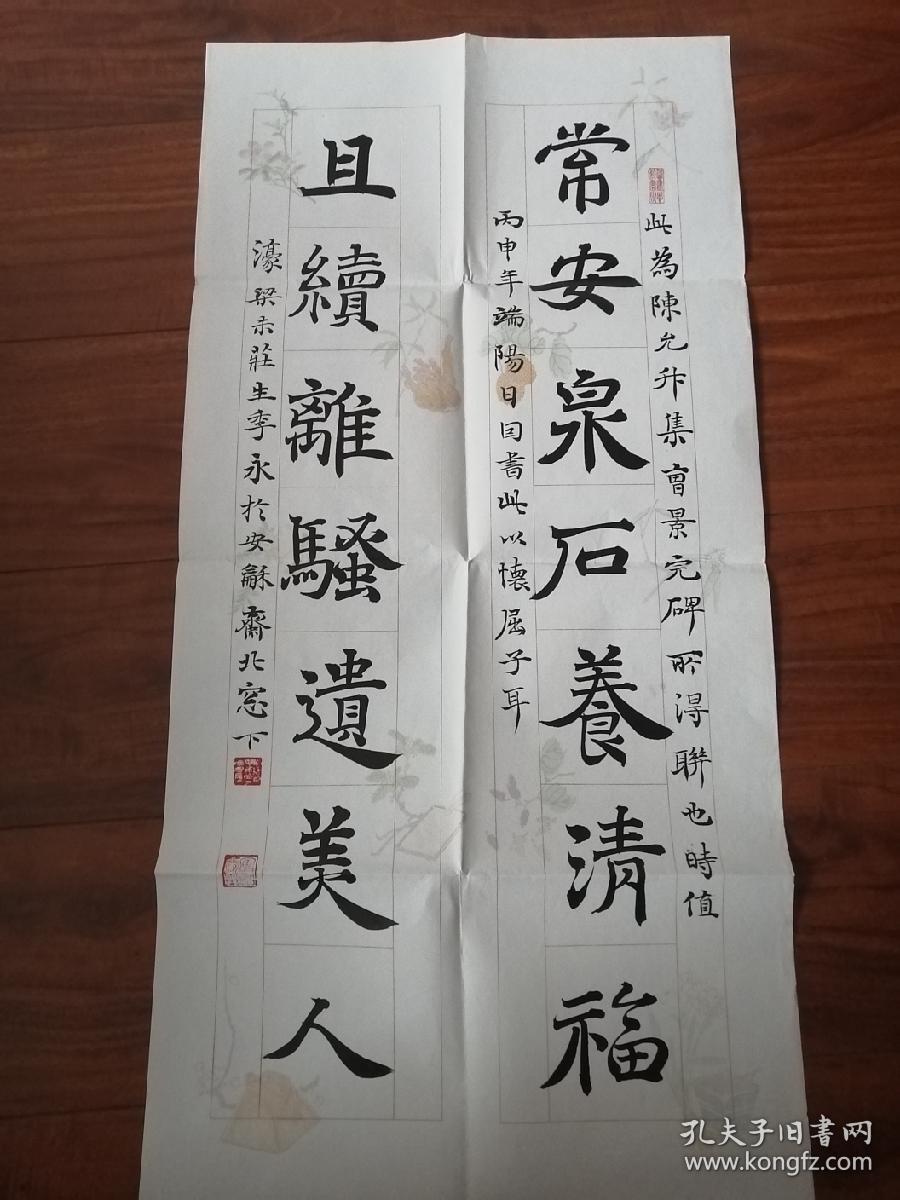 此為陳允升集曹景完碑所得聯也時值
常安泉石養清福
丙申年端陽日因書此以懷屈子耳
且續離騷遺美人
濠梁赤莊生李永於安龢齋北窓下
孔夫子旧書网
www.kongfz.com